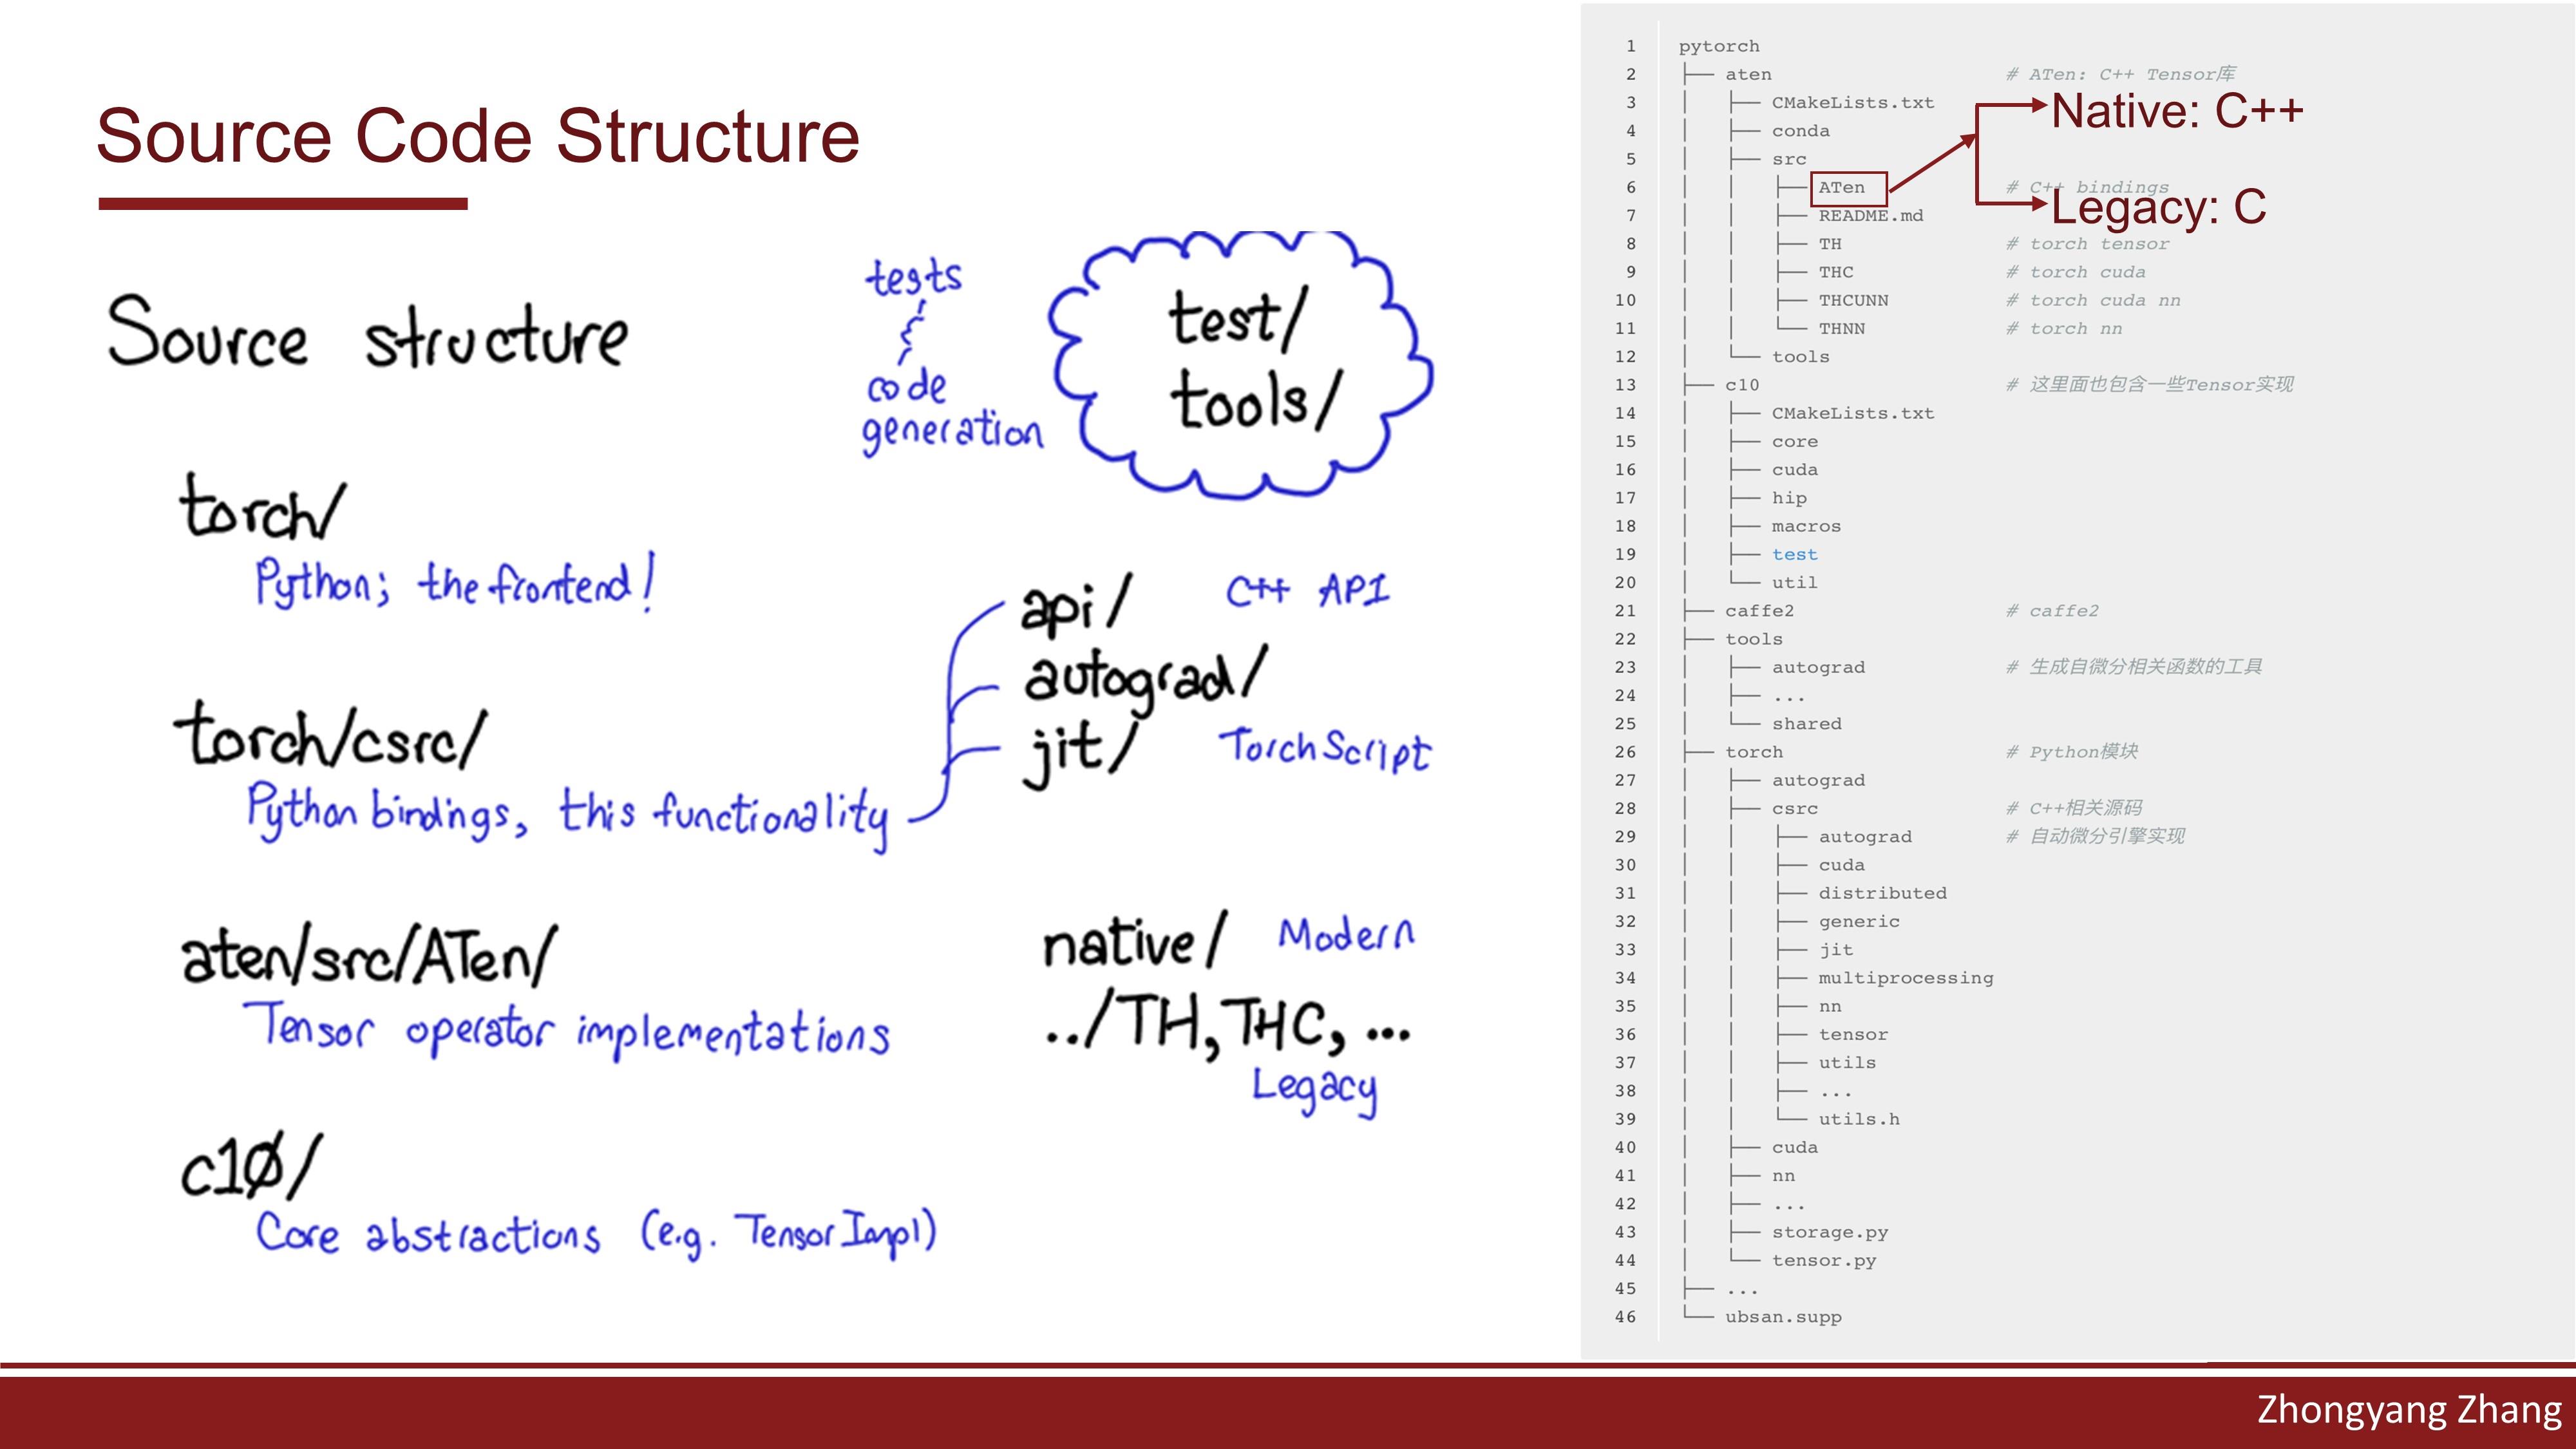 Source Code Structure
Source structure
tests
code
generation
test/
tools/
torch/
Python; the frontend!
torch/csrc/
Python bindings, this functionality
api/ C++ API
autograd/
jit/ TorchScript
aten/src/ATen/
Tensor operator implementations
native/ Modern
../TH, THC, ...
Legacy
c10/
Core abstractions (e.g. TensorImpl)
1 pytorch
2 ├── aten # ATen: C++ Tensor库
3 │ ├── CMakeLists.txt
Native: C++
4 │ ├── conda
5 │ ├── src
6 │ │ ├── ATen # C++ bindings
Legacy: C
7 │ │ ├── README.md
8 │ │ ├── TH # torch tensor
9 │ │ ├── THC # torch cuda
10 │ │ ├── THCUNN # torch cuda nn
11 │ │ └── THNN # torch nn
12 │ └── tools
13 ├── c10 # 这里面也包含一些Tensor实现
14 │ ├── CMakeLists.txt
15 │ ├── core
16 │ ├── cuda
17 │ ├── hip
18 │ ├── macros
19 │ ├── test
20 │ └── util
21 ├── caffe2 # caffe2
22 ├── tools
23 │ ├── autograd # 生成自微分相关函数的工具
24 │ ├── ...
25 │ └── shared
26 ├── torch # Python模块
27 │ ├── autograd
28 │ ├── csrc # C++相关源码
29 │ │ ├── autograd # 自动微分引擎实现
30 │ │ ├── cuda
31 │ │ ├── distributed
32 │ │ ├── generic
33 │ │ ├── jit
34 │ │ ├── multiprocessing
35 │ │ ├── nn
36 │ │ ├── tensor
37 │ │ ├── utils
38 │ │ ├── ...
39 │ │ └── utils.h
40 │ ├── cuda
41 │ ├── nn
42 │ ├── ...
43 │ ├── storage.py
44 │ └── tensor.py
45 ├── ...
46 └── ubsan.supp
Zhongyang Zhang